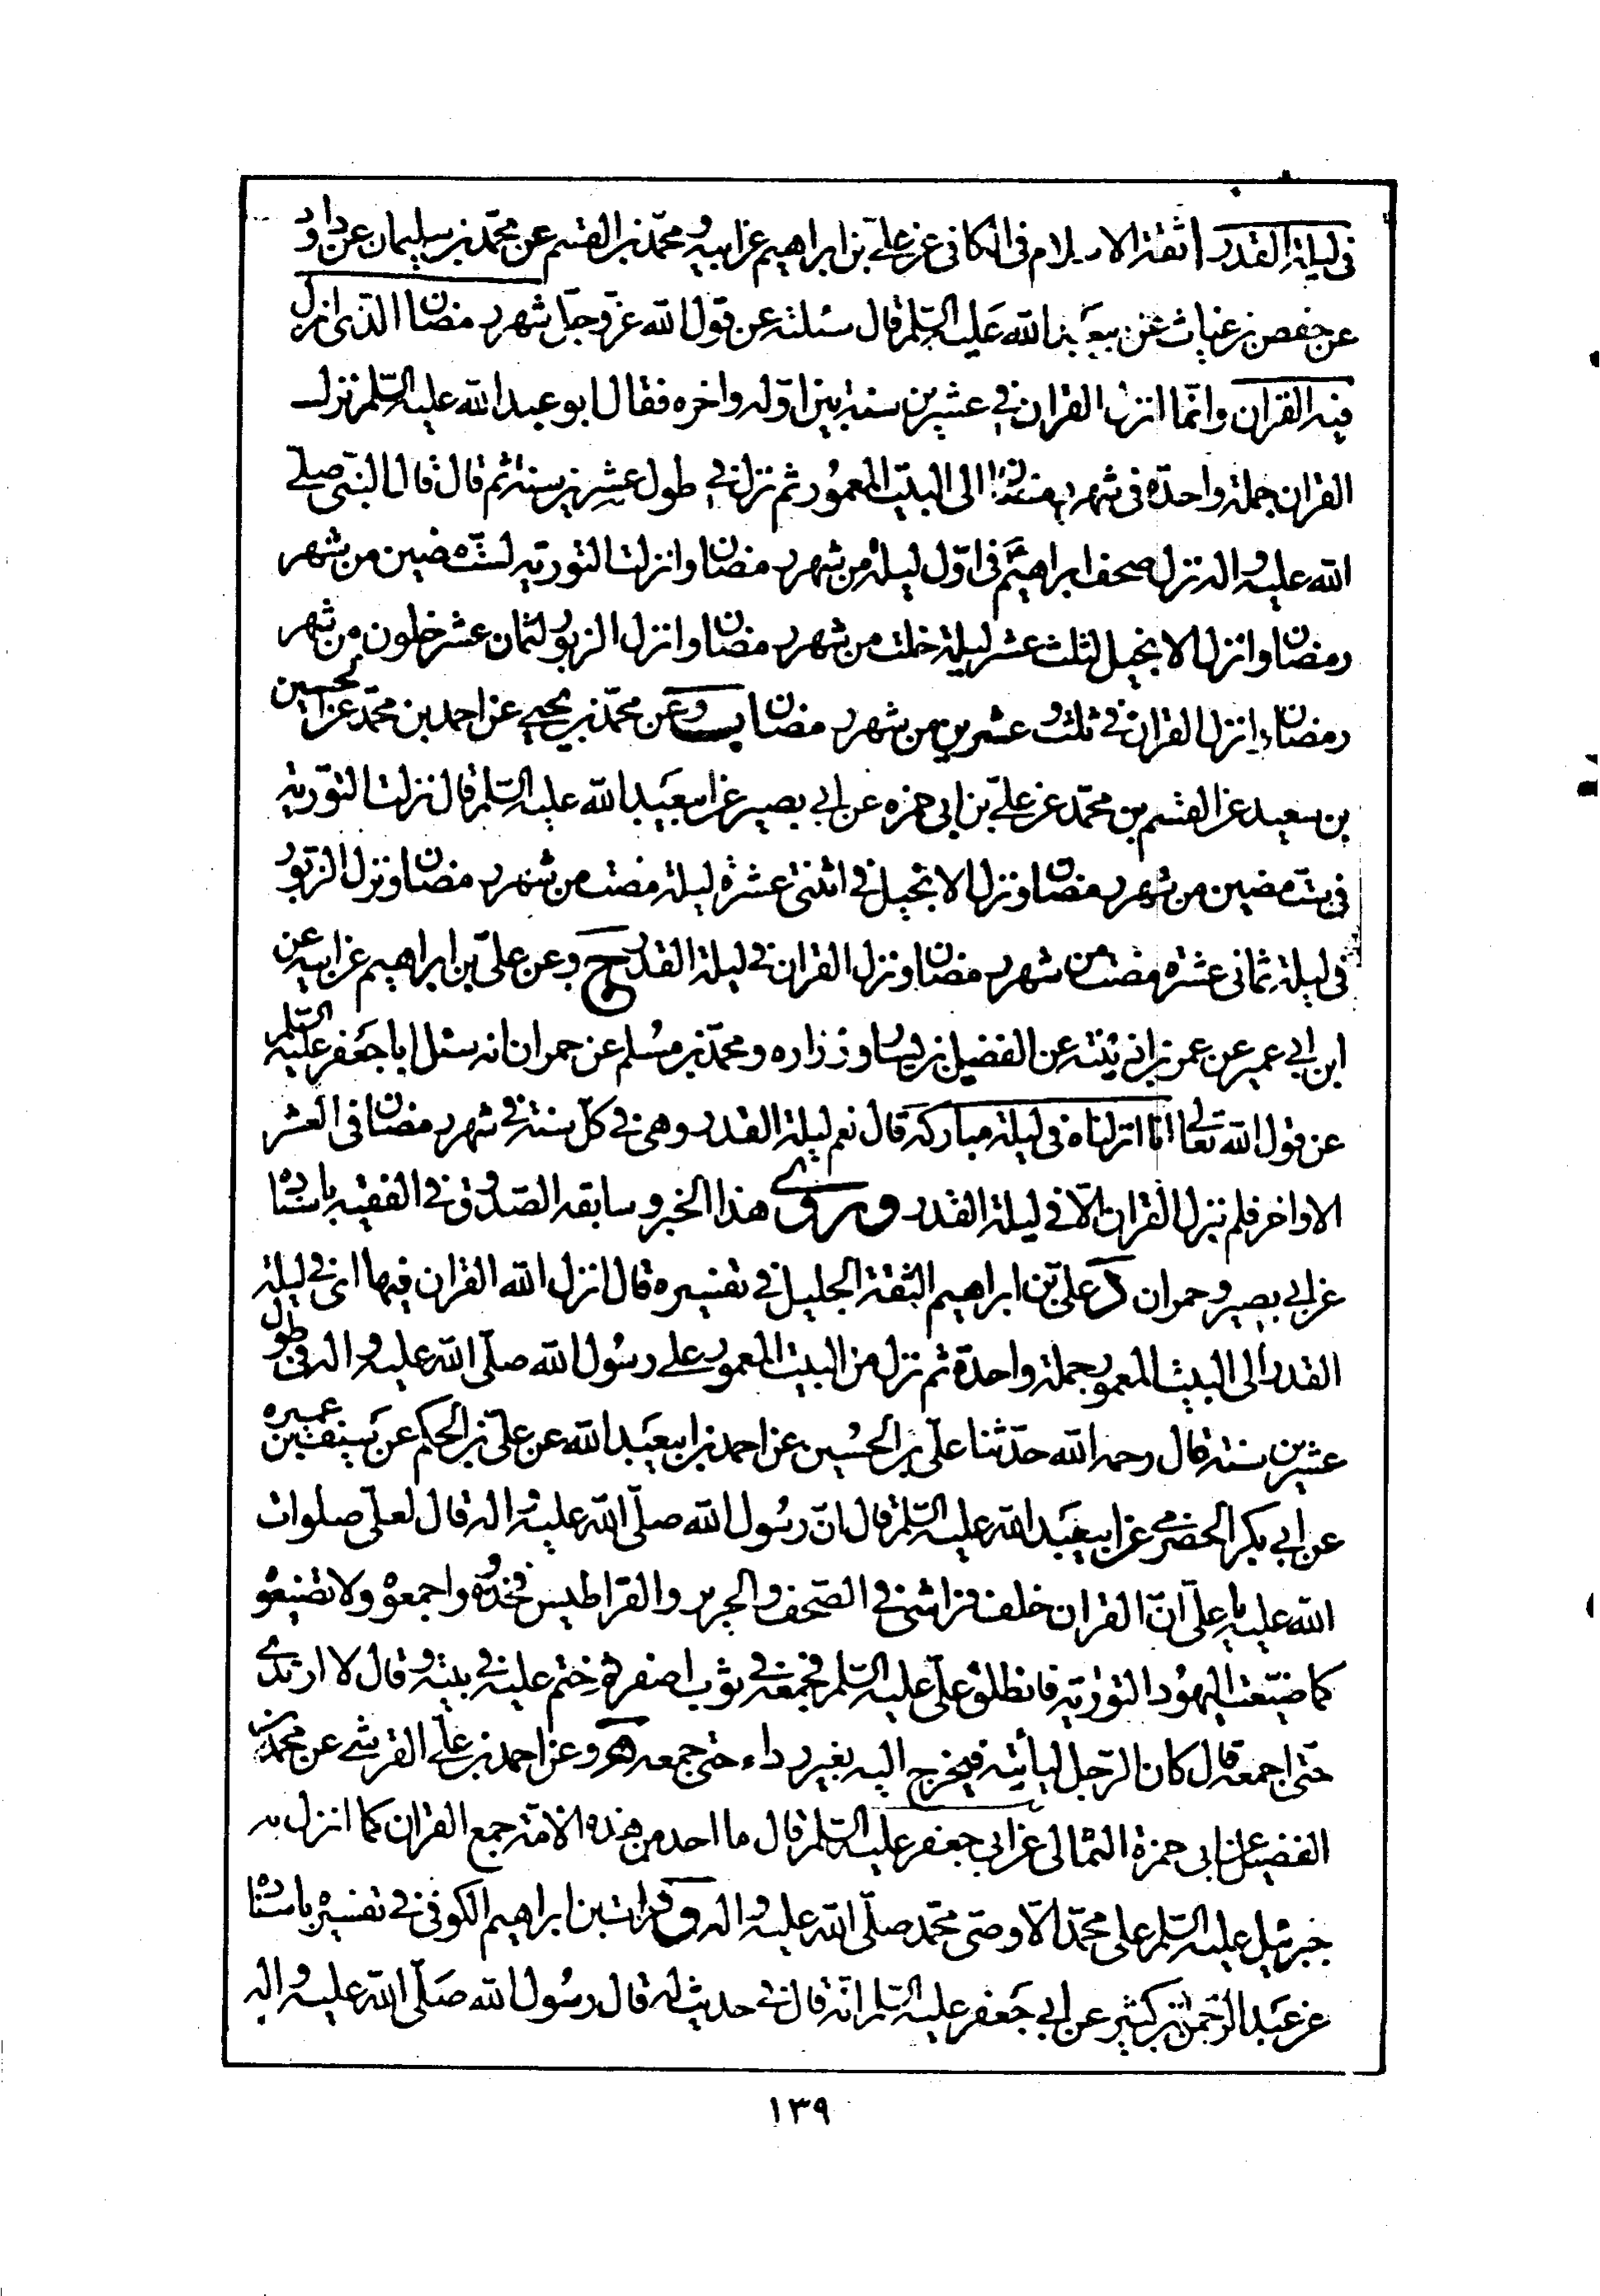 في ليلة القدر ا ثقة الاسلام في الكافي عن علي بن ابراهيم عن ابيه ومحمد بن القسم عن محمد بن سليمان عن داود
عن حفص بن غياث عن ابيعبد الله عليه السلم قال سئلته عن قول الله عز وجل شهر رمضان الذي انزل
فيه القران وانما انزل القران في عشرين سنة بين اوله واخره فقال ابو عبد الله عليه السلم نزل
القران جملة واحدة في شهر رمضان الى البيت المعمور ثم نزل في طول عشرين سنة ثم قال قال النبي صلى
الله عليه واله نزل صحف ابراهيم في اول ليلة من شهر رمضان وانزلت التورية لست مضين من شهر
رمضان وانزل الانجيل لثلث عشر ليلة خلت من شهر رمضان وانزل الزبور لثمان عشر خلون من شهر
رمضان وانزل القران في ثلث وعشرين من شهر رمضان ب وعن محمد بن يحيى عن احمد بن محمد عن الحسين
بن سعيد عن القسم بن محمد عن علي بن ابي حمزه عن ابي بصير عن ابيعبد الله عليه السلم قال نزلت التورية
في ست مضين من شهر رمضان ونزل الانجيل في اثنتي عشرة ليلة مضت من شهر رمضان ونزل الزبور
في ليلة ثماني عشرة مضت من شهر رمضان ونزل القران في ليلة القدر ج وعن علي بن ابراهيم عن ابيه عن
ابن ابي عمير عن عمر بن اذينة عن الفضيل بن يسار وزراره ومحمد بن مسلم عن حمران انه سئل ابا جعفر عليه السلم
عن قول الله تعالى انا انزلناه في ليلة مباركة قال نعم ليلة القدر وهي في كل سنة في شهر رمضان في العشر
الاواخر فلم ينزل القران الا في ليلة القدر وروى هذا الخبر وسابقه الصدوق في الفقيه باسناده
عن ابي بصير وحمران د علي بن ابراهيم الثقة الجليل في تفسيره قال انزل الله القران فيها اي في ليلة
القدر الى البيت المعمور جملة واحدة ثم نزل من البيت المعمور على رسول الله صلى الله عليه واله في طول
عشرين سنة قال رحمه الله حدثنا علي بن الحسين عن احمد بن ابيعبد الله عن علي بن الحكم عن سيف بن عميره
عن ابي بكر الحضرمي عن ابيعبد الله عليه السلم قال ان رسول الله صلى الله عليه واله قال لعلي صلوات
الله عليه يا علي ان القران خلف فراشي في الصحف والحرير والقراطيس فخذوه واجمعوه ولا تضيعوه
كما ضيعت اليهود التورية فانطلق علي عليه السلم فجمعه في ثوب اصفر ثم ختم عليه في بيته وقال لا ارتدي
حتى اجمعه قال كان الرجل ليأتيه فيخرج اليه بغير رداء حتى جمعه ه وعن احمد بن علي القرشي عن محمد بن
الفضيل عن ابي حمزة الثمالي عن ابي جعفر عليه السلم قال ما احد من هذه الامة جمع القران كما انزل به
جبرئيل عليه السلم على محمد الا وصي محمد صلى الله عليه واله و فرات بن ابراهيم الكوفي في تفسيره باسناده
عن عبد الرحمن بن كثير عن ابي جعفر عليه السلم انه قال في حديث له قال رسول الله صلى الله عليه واله
١٣٩